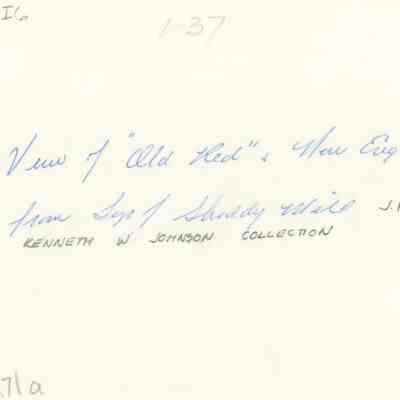 I6
1-37
View of "Old Red" & New Eng
from Top of Shoddy Mill J.
KENNETH W JOHNSON COLLECTION
71a